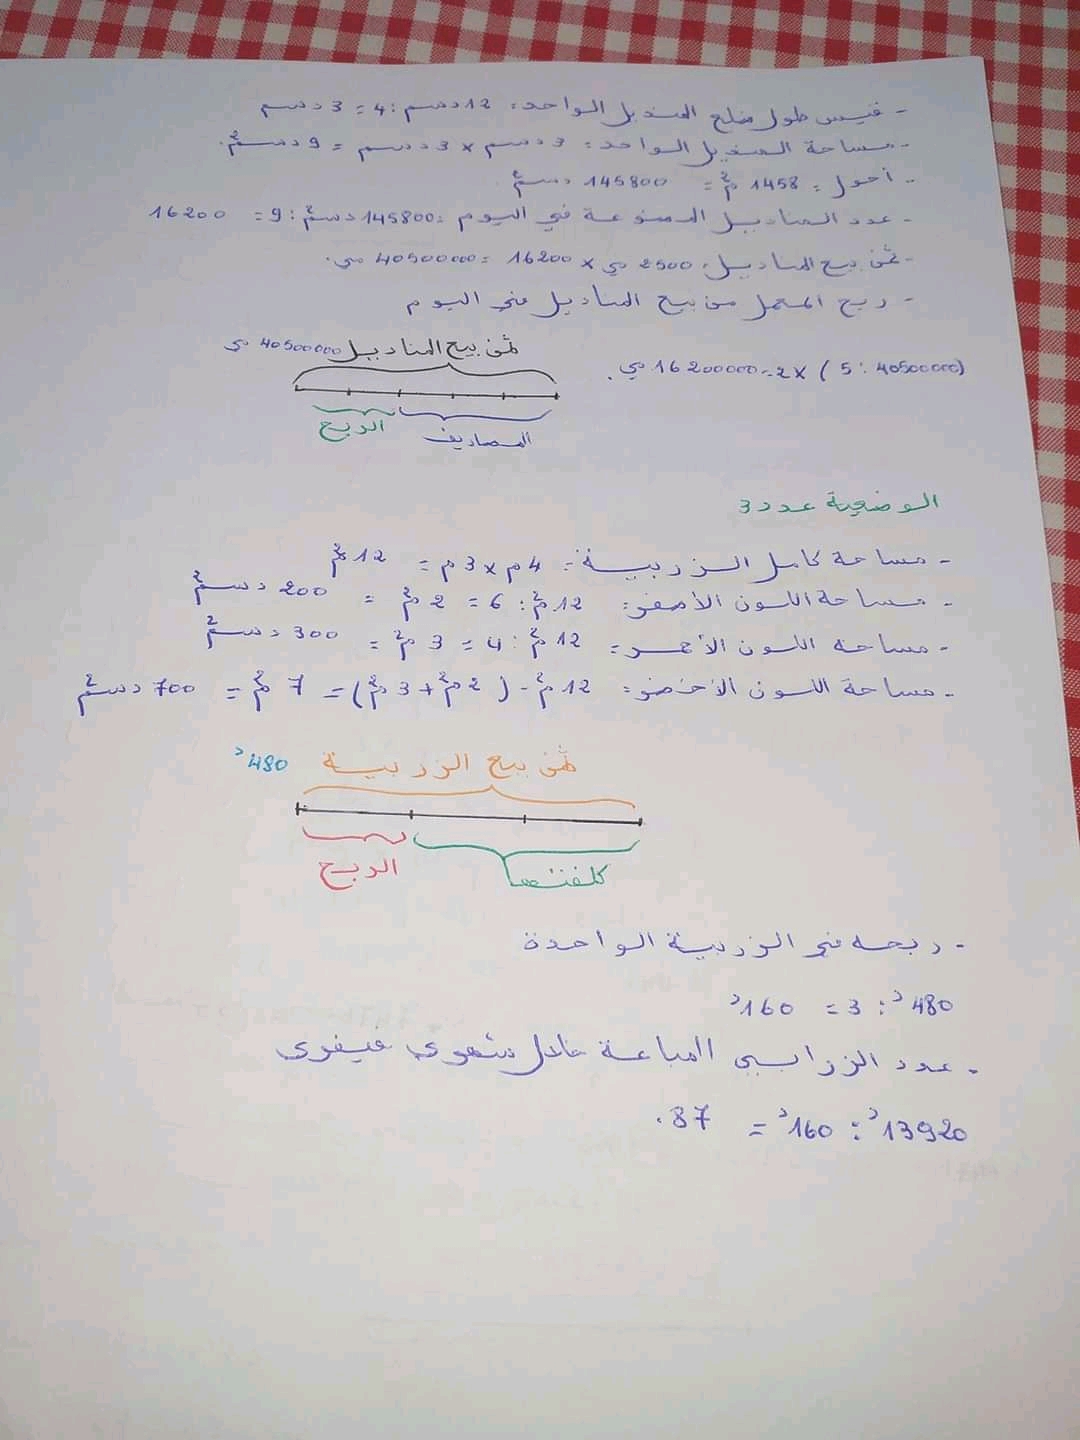 - قيس طول ضلع المنديل الواحد: 12 دسم : 4 = 3 دسم
- مساحة المنديل الواحد: 3 دسم × 3 دسم = 9 دسم².
- أحول: 1458 م² = 145800 دسم²
- عدد المناديل المصنوعة في اليوم: 145800 دسم² : 9 = 16200
- ثمن بيع المناديل: 2500 مي × 16200 = 40500000 مي.
- ربح المعمل من بيع المناديل في اليوم
(40500000 : 5) × 2 = 16200000 مي.
ثمن بيع المناديل 40500000 مي
المصاريف
الربح
الوضعية عدد 3
- مساحة كامل الزربية: 4 م × 3 م = 12 م²
- مساحة اللون الأصفر: 12 م² : 6 = 2 م² = 200 دسم²
- مساحة اللون الأحمر: 12 م² : 4 = 3 م² = 300 دسم²
- مساحة اللون الأخضر: 12 م² - (2 م² + 3 م²) = 7 م² = 700 دسم²
ثمن بيع الزربية 480د
كلفتها
الربح
- ربحه في الزربية الواحدة
480د : 3 = 160د
- عدد الزرابي المباعة خلال شهري فيفري
13920د : 160د = 87.